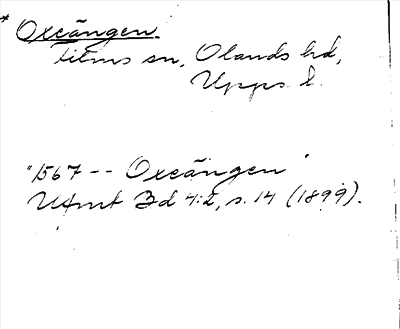 * Oxeängen.
Films sn, Olands hd,
Upps. l.
"1567 -- Oxeängen"
UFmt Bd 4:2, s. 14 (1899).